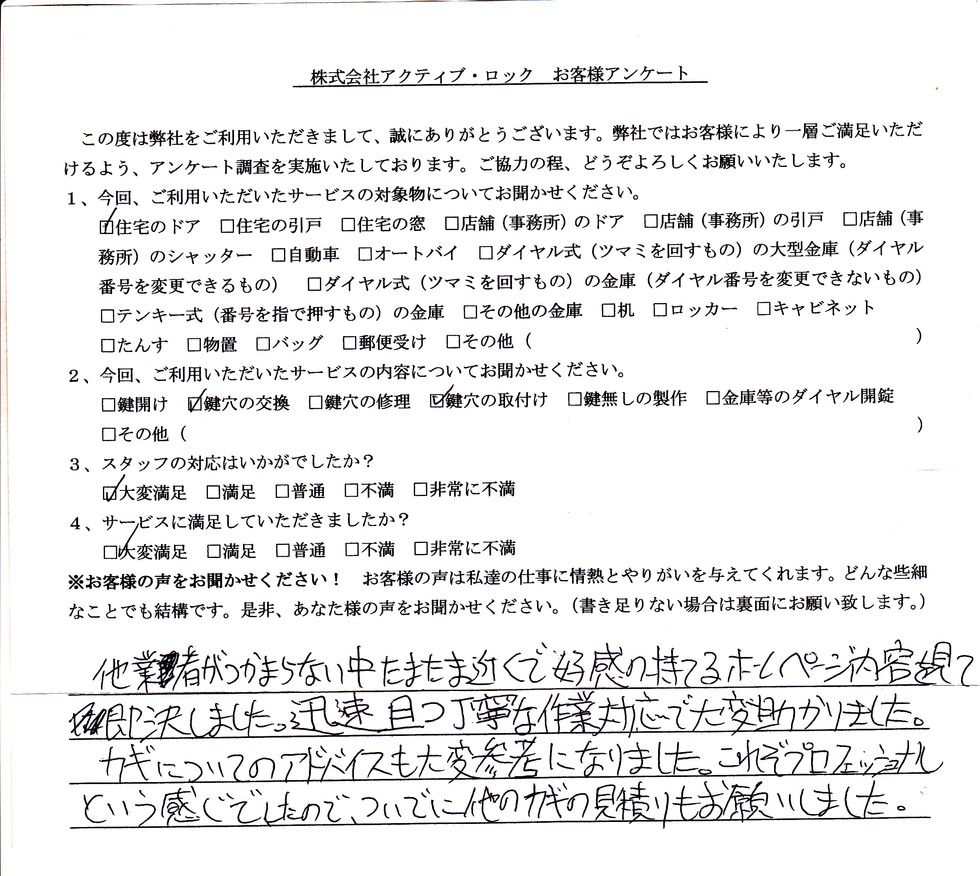 株式会社アクティブ・ロック　お客様アンケート
この度は弊社をご利用いただきまして、誠にありがとうございます。弊社ではお客様により一層ご満足いただ
けるよう、アンケート調査を実施いたしております。ご協力の程、どうぞよろしくお願いいたします。
１、今回、ご利用いただいたサービスの対象物についてお聞かせください。
☑住宅のドア　□住宅の引戸　□住宅の窓　□店舗（事務所）のドア　□店舗（事務所）の引戸　□店舗（事
務所）のシャッター　□自動車　□オートバイ　□ダイヤル式（ツマミを回すもの）の大型金庫（ダイヤル
番号を変更できるもの）　□ダイヤル式（ツマミを回すもの）の金庫（ダイヤル番号を変更できないもの）
□テンキー式（番号を指で押すもの）の金庫　□その他の金庫　□机　□ロッカー　□キャビネット
□たんす　□物置　□バッグ　□郵便受け　□その他（　　　　　　　　　　）
２、今回、ご利用いただいたサービスの内容についてお聞かせください。
□鍵開け　☑鍵穴の交換　□鍵穴の修理　☑鍵穴の取付け　□鍵無しの製作　□金庫等のダイヤル開錠
□その他（　　　　　　　　　　）
３、スタッフの対応はいかがでしたか？
☑大変満足　□満足　□普通　□不満　□非常に不満
４、サービスに満足していただきましたか？
☑大変満足　□満足　□普通　□不満　□非常に不満
※お客様の声をお聞かせください！　お客様の声は私達の仕事に情熱とやりがいを与えてくれます。どんな些細
なことでも結構です。是非、あなた様の声をお聞かせください。（書き足りない場合は裏面にお願い致します。）
他業者がつかまらない中たまたま近くで好感の持てるホームページ内容を見て
即決しました。迅速且つ丁寧な作業対応で大変助かりました。
カギについてのアドバイスも大変参考になりました。これぞプロフェッショナル
という感じでしたので、ついでに他のカギの見積りもお願いしました。